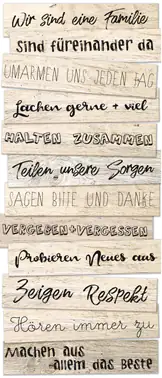 Wir sind eine Familie
sind füreinander da
UMARMEN UNS JEDEN TAG
Lachen gerne + viel
HALTEN ZUSAMMEN
Teilen unsere Sorgen
SAGEN BITTE UND DANKE
VERGEBEN+VERGESSEN
Probieren Neues aus
Zeigen Respekt
Hören immer zu
Machen aus
allem das Beste